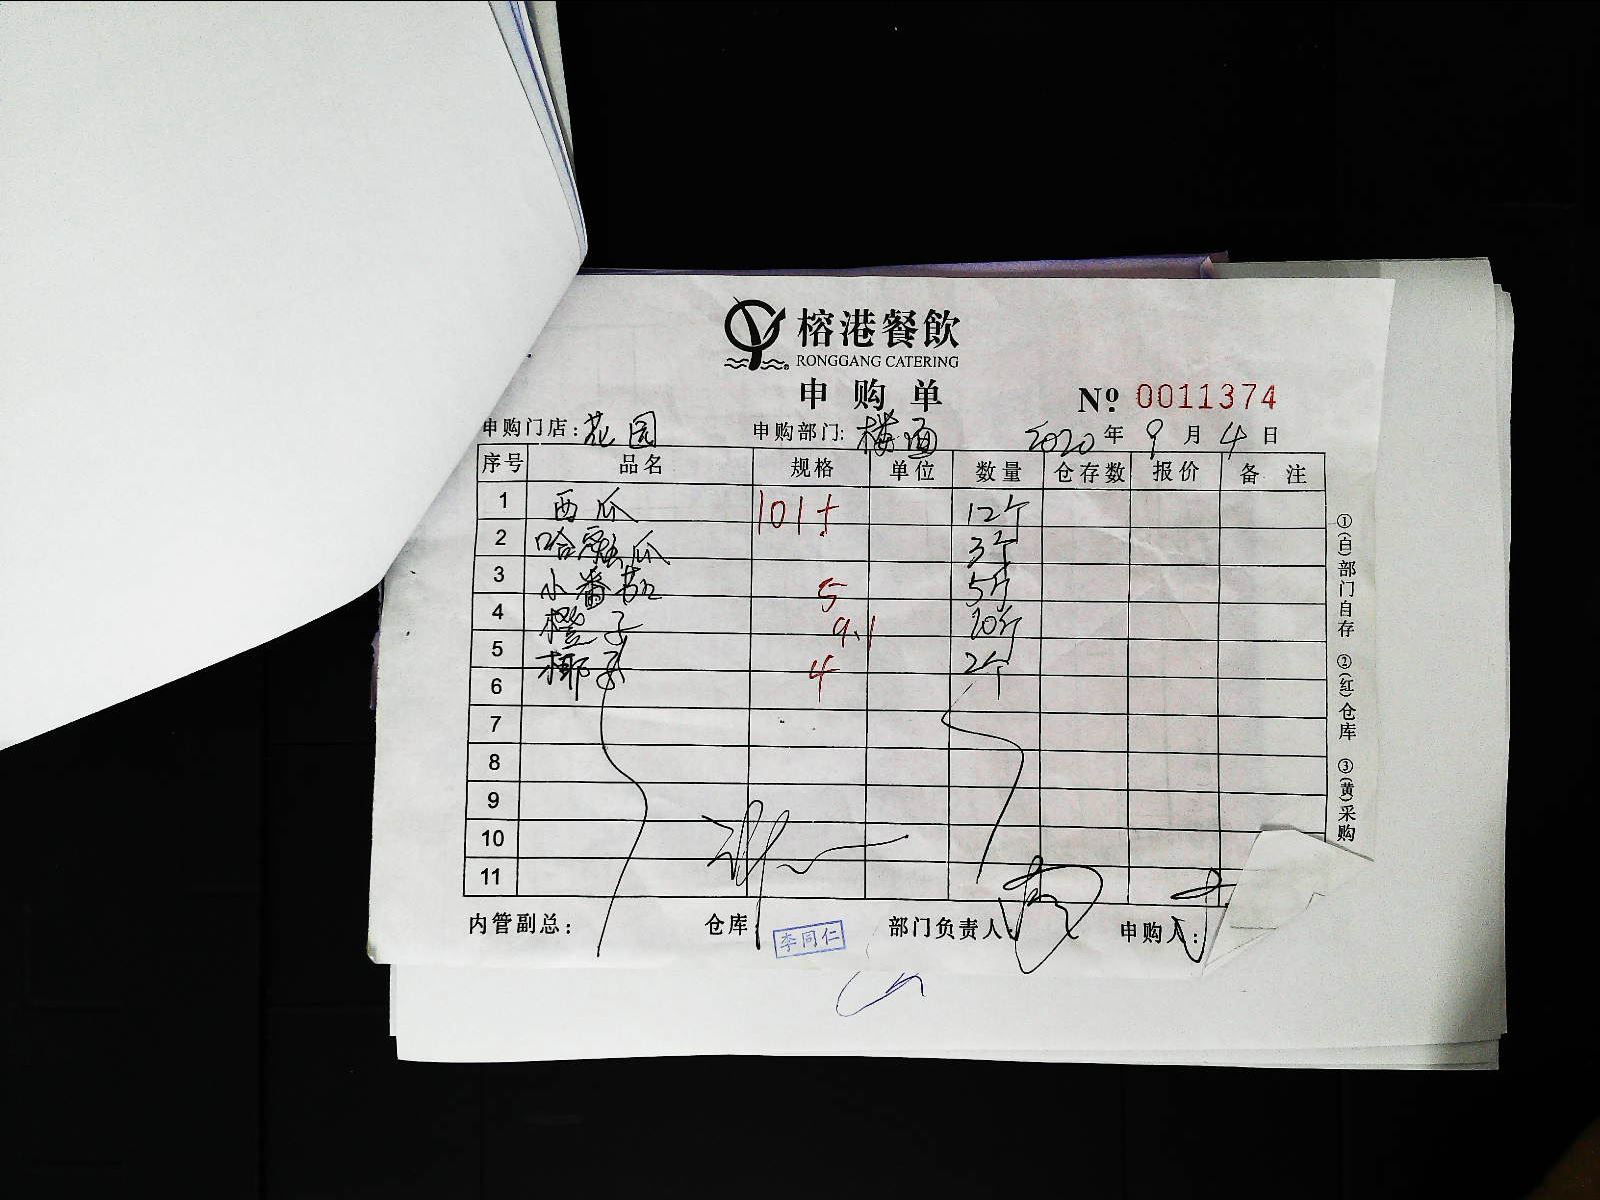 榕港餐飲
RONGGANG CATERING
申购单
Nº 0011374
申购门店:花园 申购部门:楼面 2020年9月4日
序号 品名 规格 单位 数量 仓存数 报价 备注
1 西瓜 101斤 12个
2 哈密瓜 3个
3 小番茄 5 5斤
4 橙子 9.1 20个
5 椰子 4 2个
6
7
8
9
10
11
内管副总: 仓库 李同仁 部门负责人: 申购人:
①(白)部门自存 ②(红)仓库 ③(黄)采购